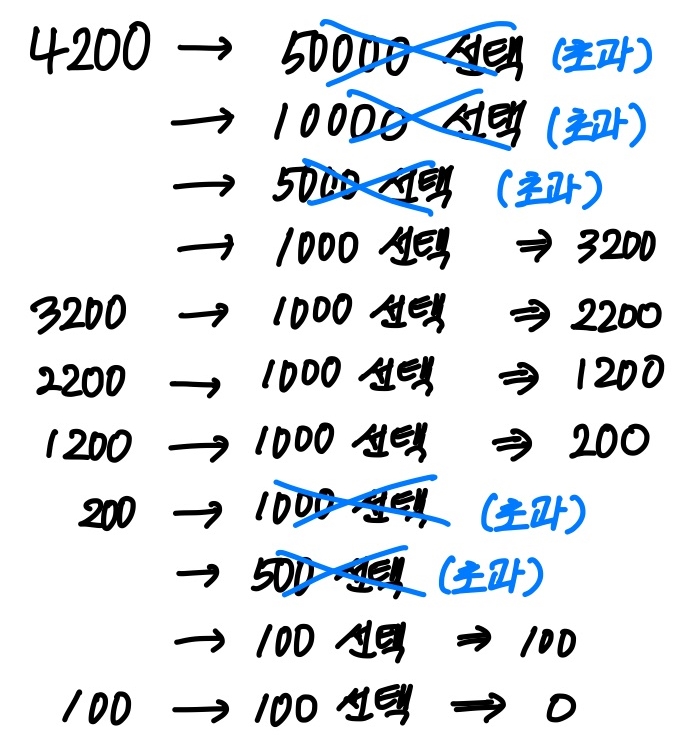 4200 → 50000 선택 (초과)
→ 10000 선택 (초과)
→ 5000 선택 (초과)
→ 1000 선택 ⇒ 3200
3200 → 1000 선택 ⇒ 2200
2200 → 1000 선택 ⇒ 1200
1200 → 1000 선택 ⇒ 200
200 → 1000 선택 (초과)
→ 500 선택 (초과)
→ 100 선택 ⇒ 100
100 → 100 선택 ⇒ 0